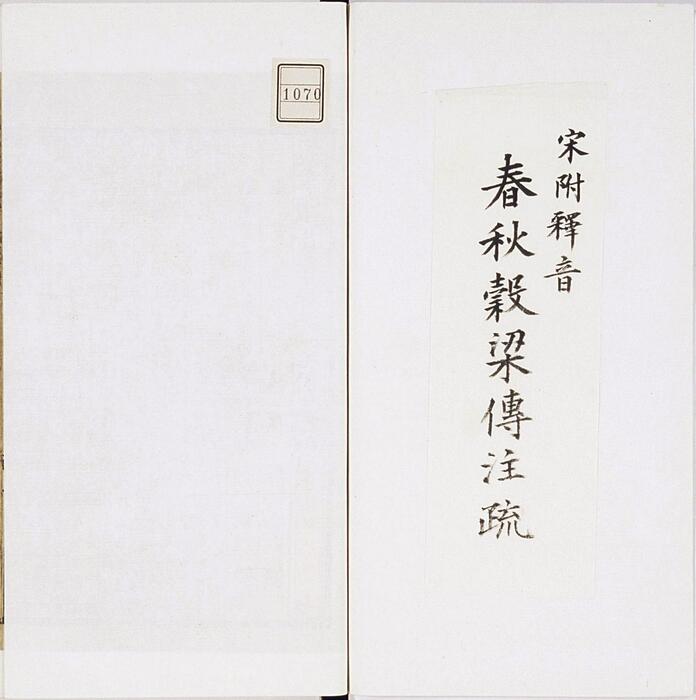 宋附釋音
春秋穀梁傳注疏
1070